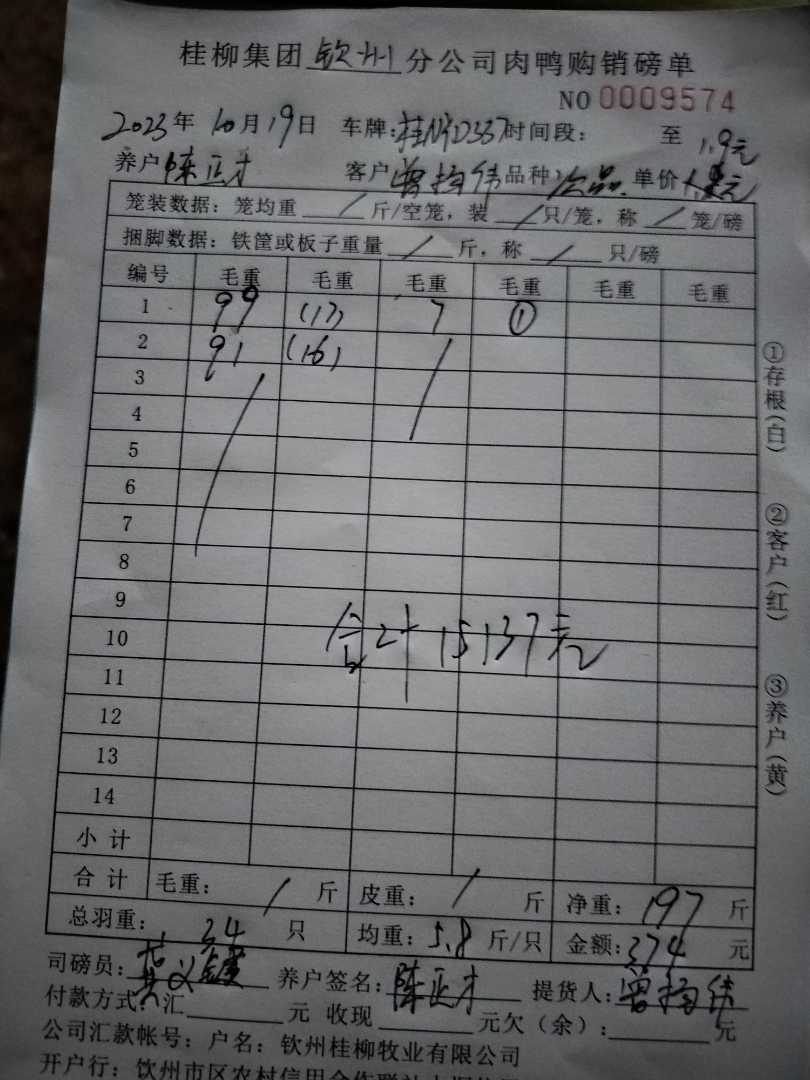 桂柳集团 钦州 分公司肉鸭购销磅单
NO 0009574
2023年 10月 19日 车牌: 时间段: 至 1.9元
养户 陈正才 客户 品种 次品 单价
笼装数据:笼均重 / 斤/空笼,装 / 只/笼,称 / 笼/磅
捆脚数据:铁筐或板子重量 / 斤,称 / 只/磅
编号 毛重 毛重 毛重 毛重 毛重 毛重
1 99 (17) 7 ①
2 91 (16)
3
4
5
6
7
8
9
10 合计 15137元
11
12
13
14
小计
合计 毛重: / 斤 皮重: / 斤 净重: 197 斤
总羽重: 34 只 均重: 5.8 斤/只 金额: 374 元
司磅员: 养户签名: 陈正才 提货人:
付款方式:汇 元 收现 元欠(余): 元
公司汇款帐号:户名:钦州桂柳牧业有限公司
开户行:钦州市区农村信用合作联社
①存根(白)
②客户(红)
③养户(黄)